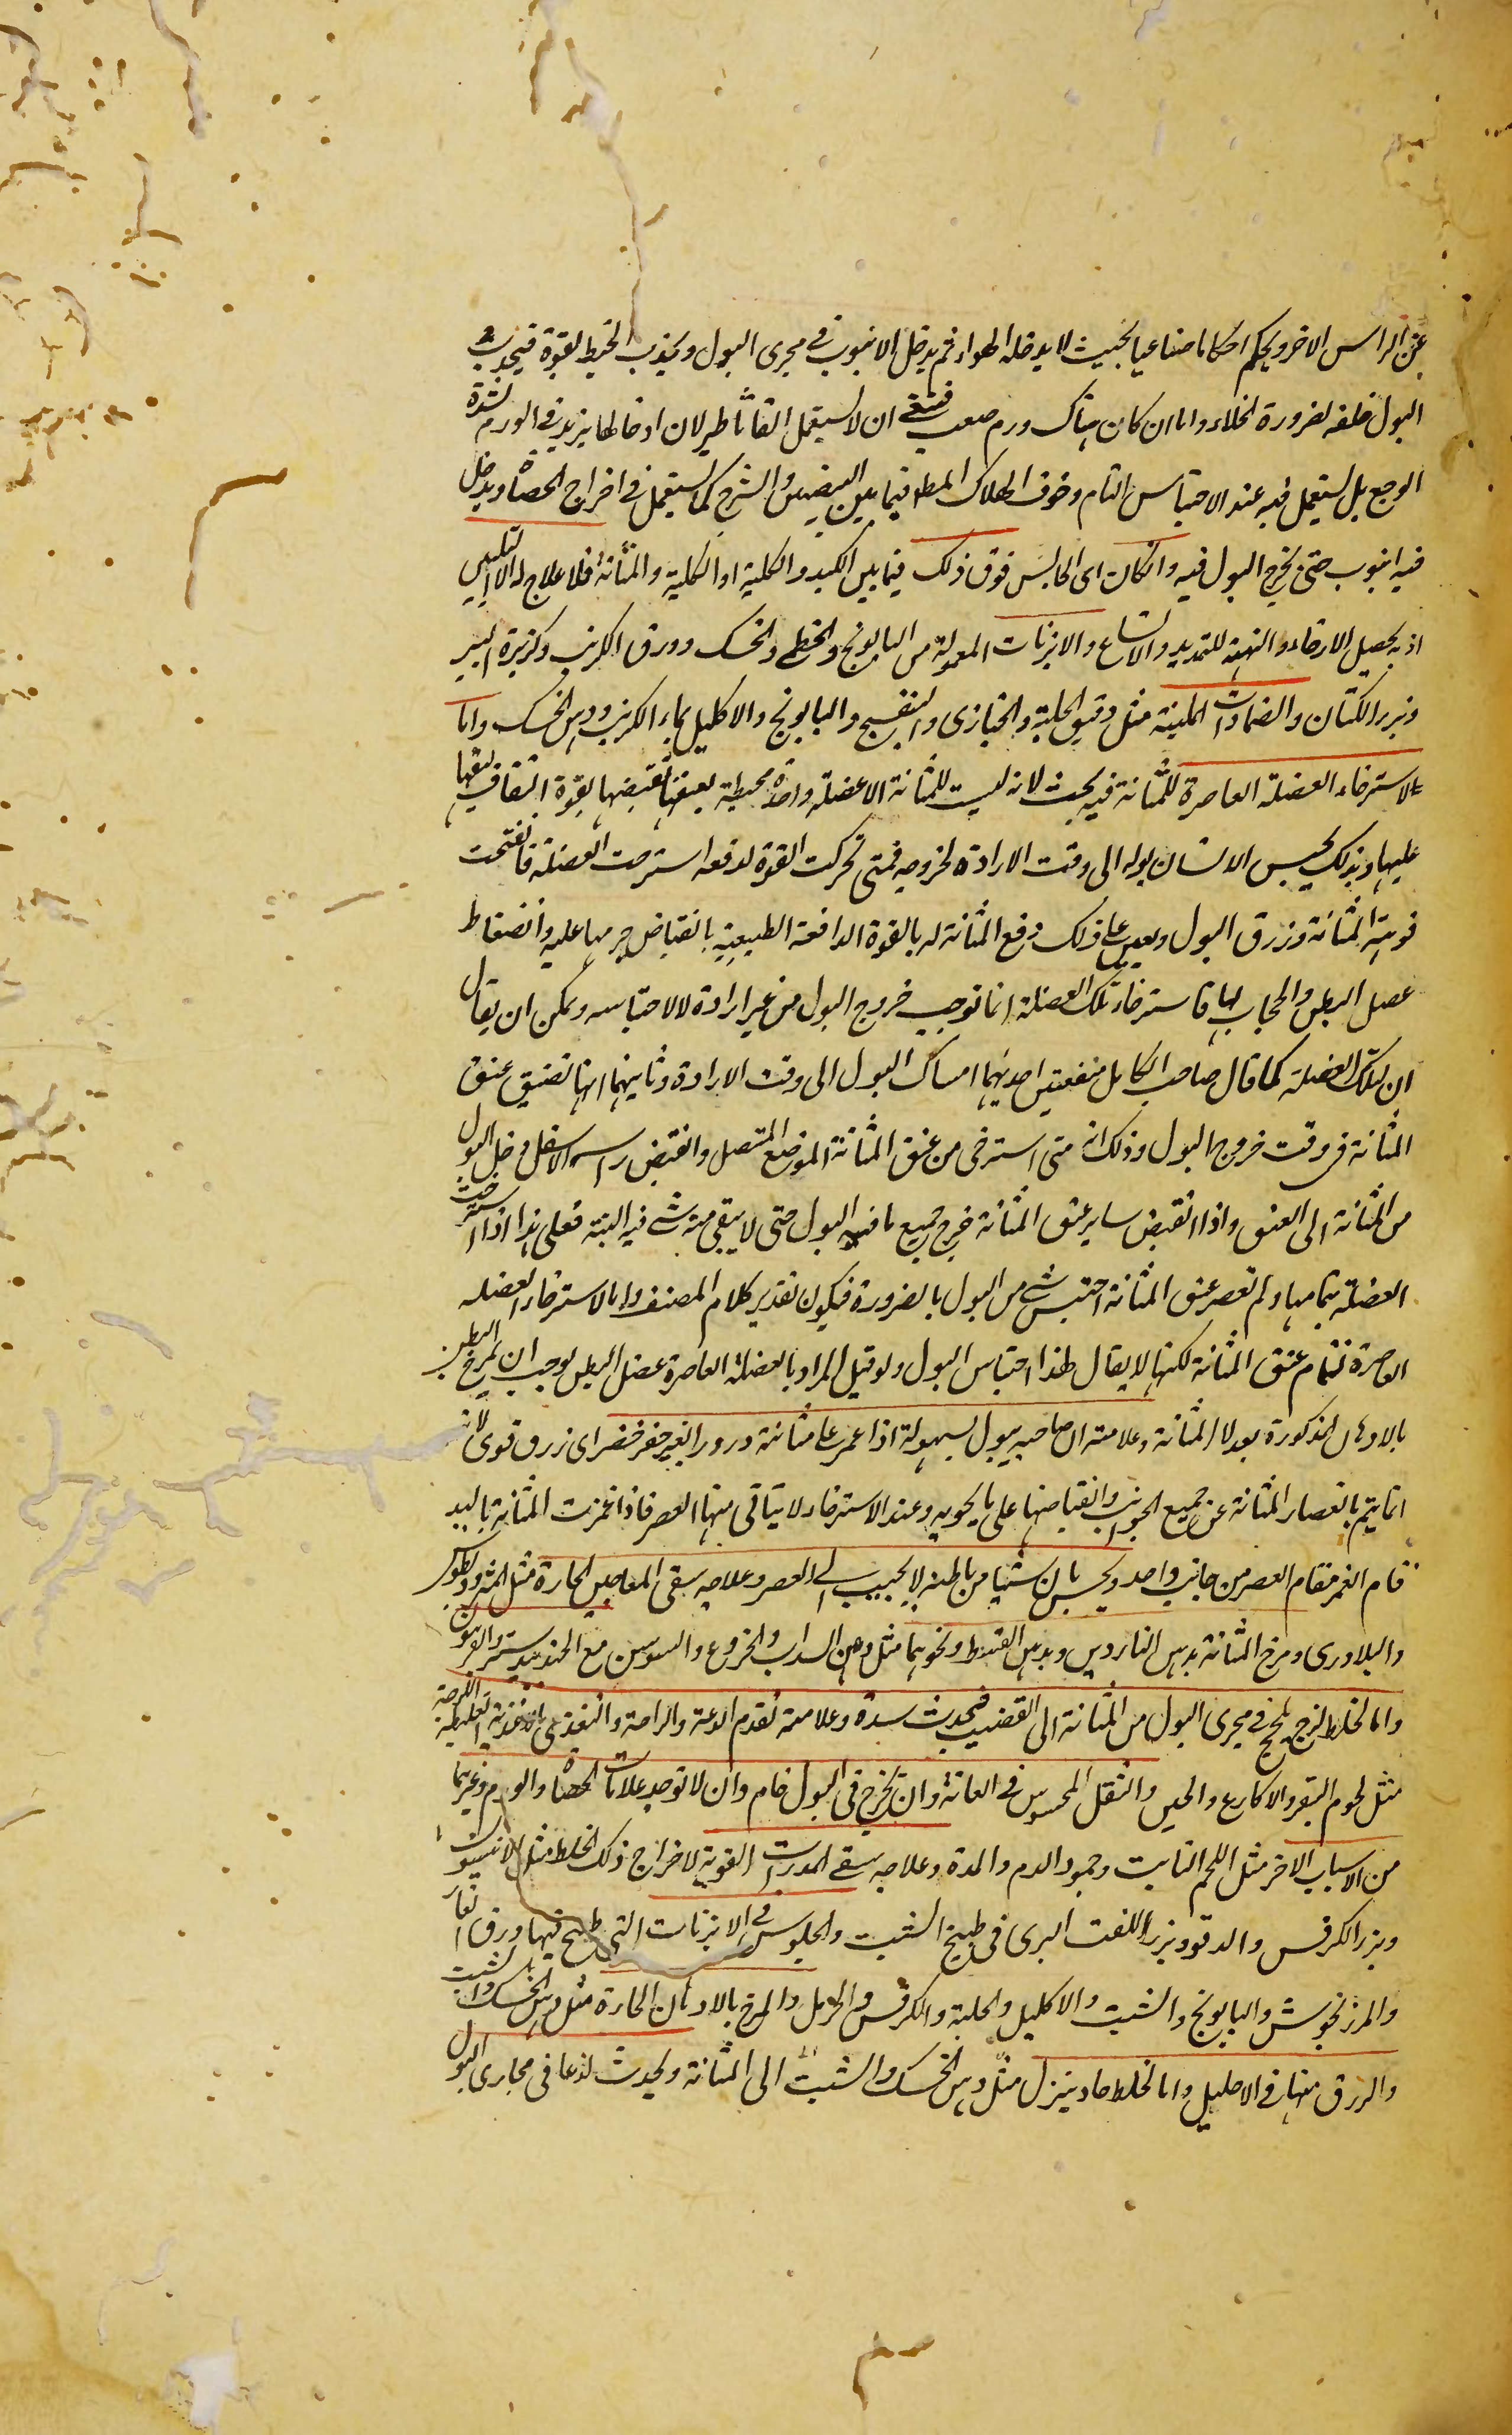 عن الراس الاخر ويحكم احكاما صناعيا بحيث لا يدخله الهواء ثم يدخل الانبوب فى مجرى البول ويجذب الخيط بقوة فيجذب
البول خلفه لضرورة الخلاء واما ان كان هناك ورم صعب فينبغى ان لا يستعمل القاثاطير لان ادخالها يزيد فى الورم لشدة
الوجع بل يستعمل فيه عند الاحتباس التام وخوف الهلاك البط فيما بين البيضتين والشرج كما يستعمل فى اخراج الحصاة ويدخل
فيه انبوب حتى يخرج البول فيه وان كان اى الحابس فوق ذلك فيما بين الكبد والكلية او الكلية والمثانة فلا علاج له الا التليين
اذ به يحصل الارخاء والتهيئة للتمديد والاتساع والابزنات المعمولة من البابونج والخطمى والحسك وورق الكرنب وكزبرة البير
وبزر الكتان والضمادات الملينة مثل دقيق الحلبة والخبازى والبنفسج والبابونج والاكليل بماء الكرنب ودهن الحسك واما
لاسترخاء العضلة العاصرة للمثانة فيه بحث لانه ليست للمثانة الا عضلة واحدة محيطة بعنقها تقبضها بقوة التفاف ليفها
عليها وبذلك يحبس الانسان بوله الى وقت الارادة لخروجه فمتى تحركت القوة لدفعه استرخت العضلة فانفتحت
فوهة المثانة وزرق البول ويعين على ذلك دفع المثانة له بالقوة الدافعة الطبيعية بانقباض جرمها عليه وانضغاط
عضل البطن والحجاب لها فاسترخاء تلك العضلة انما توجب خروج البول من غير ارادة لا لاحتباسه ويمكن ان يقال
ان لتلك العضلة كما قال صاحب الكامل منفعتين احديهما امساك البول الى وقت الارادة وثانيهما انها تضيق عنق
المثانة فى وقت خروج البول وذلك انه متى استرخى من عنق المثانة الموضع المتصل وانقبض راسه الاسفل دخل البول
من المثانة الى العنق واذا انقبض ساير عنق المثانة خرج جميع ما فيه البول حتى لا يبقى منه شى فيه البتة فعلى هذا اذا استرخت
العضلة بتمامها ولم تعصر عنق المثانة احتبس شى من البول بالضرورة فيكون تقدير كلام المصنف واما لاسترخاء العضلة
العاصرة لتمام عنق المثانة لكنها لا يقال لهذا احتباس البول ولو قيل المراد بالعضلة العاصرة عضل البطن لوجب ان يمرخ البطن
بالادهان المذكورة بعد لا المثانة وعلامته ان صاحبه يبول بسهولة اذا غمز على مثانته ودرور بغير حفز اى زرق قوى لانه
انما يتم بانعصار المثانة عن جميع الجوانب وانقباضها على ما يحويه وعند الاسترخاء لا يتاتى منها العصر فاذا غمزت المثانة باليد
قام الغمز مقام العصر من جانب واحد ويحس بان شيئا من باطنه لا يجيب الى العصر وعلاجه سقى المعاجين الحارة مثل المثروديطوس
والبلادرى ومرخ المثانة بدهن الناردين وبدهن القسط ونحوهما مثل دهن السداب والخروع والسوسن مع الجندبيدستر والفربيون
واما لخلط لزج يلحج فى مجرى البول من المثانة الى القضيب فيحدث سدة وعلامته تقدم الدعة والراحة والتغذى بالاغذية الغليظة اللزجة
مثل لحوم البقر والاكارع والجبن والثقل المحسوس فى العانة وان يخرج فى البول خام وان لا توجد علامات الحصاة والورم وغيرهما
من الاسباب الاخر مثل اللحم النابت وجمود الدم والمدة وعلاجه سقى المدرات القوية لاخراج ذلك الخلط مثل الانيسون
وبزر الكرفس والدوقو وبزر اللفت البرى فى طبيخ الشبت والجلوس فى الابزنات التى طبخ فيها ورق الغار
والمرزنجوش والبابونج والشبت والاكليل والحلبة والكرفس والحرمل والمرخ بالادهان الحارة مثل دهن الحسك والشبت
والزرق منها فى الاحليل واما لخلط حاد ينزل مثل دهن الحسك والشبت الى المثانة ويحدث لذعا فى مجارى البول